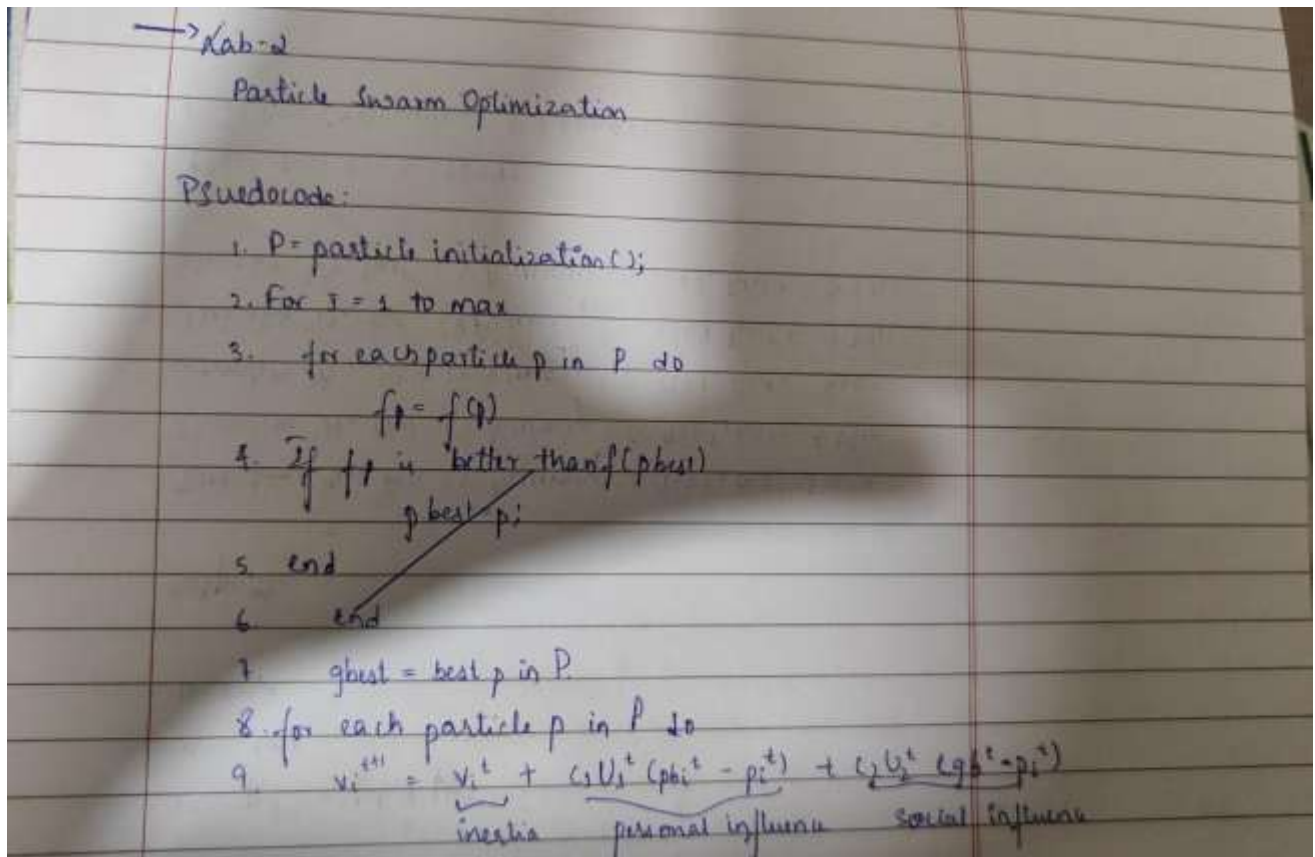 → Lab-2
Particle Swarm Optimization
Psuedocode:
1. P = particle initialization();
2. For I = 1 to max
3. for each particle p in P do
fp = f(p)
4. If fp is better than f(pbest)
pbest pi
5. end
6. end
7. gbest = best p in P.
8. for each particle p in P do
9. vi^t+1 = vi^t + c1U1^t (pbi^t - pi^t) + c2U2^t (gb^t - pi^t)
inertia personal influence social influence